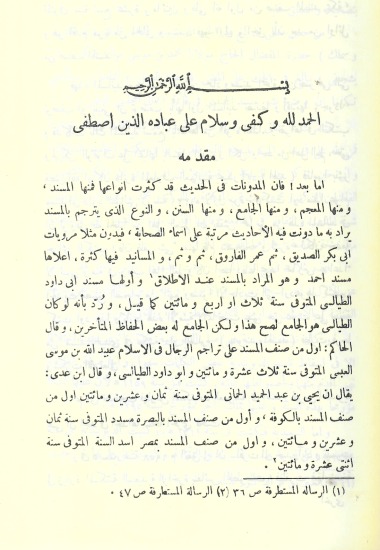 بسم الله الرحمن الرحيم
الحمد لله وكفى وسلام على عباده الذين اصطفى
مقدمه
اما بعد! فان المدونات فى الحديث قد كثرت انواعها فمنها المسند،
ومنها المعجم، ومنها الجامع، ومنها السنن، والنوع الذى يترجم بالمسند
يراد به ما دونت فيه الأحاديث مرتبة على اسماء الصحابة، فيدون مثلا مرويات
ابى بكر الصديق، ثم عمر الفاروق، ثم وثم، و المسانيد فيها كثرة، اعلاها
مسند احمد وهو المراد بالمسند عند الاطلاق¹ وأولها مسند ابى داود
الطيالسى المتوفى سنة ثلاث او اربع و مائتين كما قيل، و رُدّ بأنه لوكان
الطيالسى هو الجامع لصح هذا ولكن الجامع له بعض الحفاظ المتأخرين، وقال
الحاكم: اول من صنف المسند على تراجم الرجال فى الاسلام عبيد الله بن موسى
العبسى المتوفى سنة ثلاث عشرة و مائتين و ابو داود الطيالسى، وقال ابن عدى:
يقال ان يحيى بن عبد الحميد الحمانى المتوفى سنة ثمان وعشرين و مائتين اول من
صنف المسند بالكوفة، و أول من صنف المسند بالبصرة مسدد المتوفى سنة ثمان
و عشرين و مائتين، و اول من صنف المسند بمصر اسد السنة المتوفى سنة
اثنتى عشرة و مائتين².
(١) الرساله المستطرفة ص ٣٦ (٢) الرسالة المستطرفة ص ٤٧ .